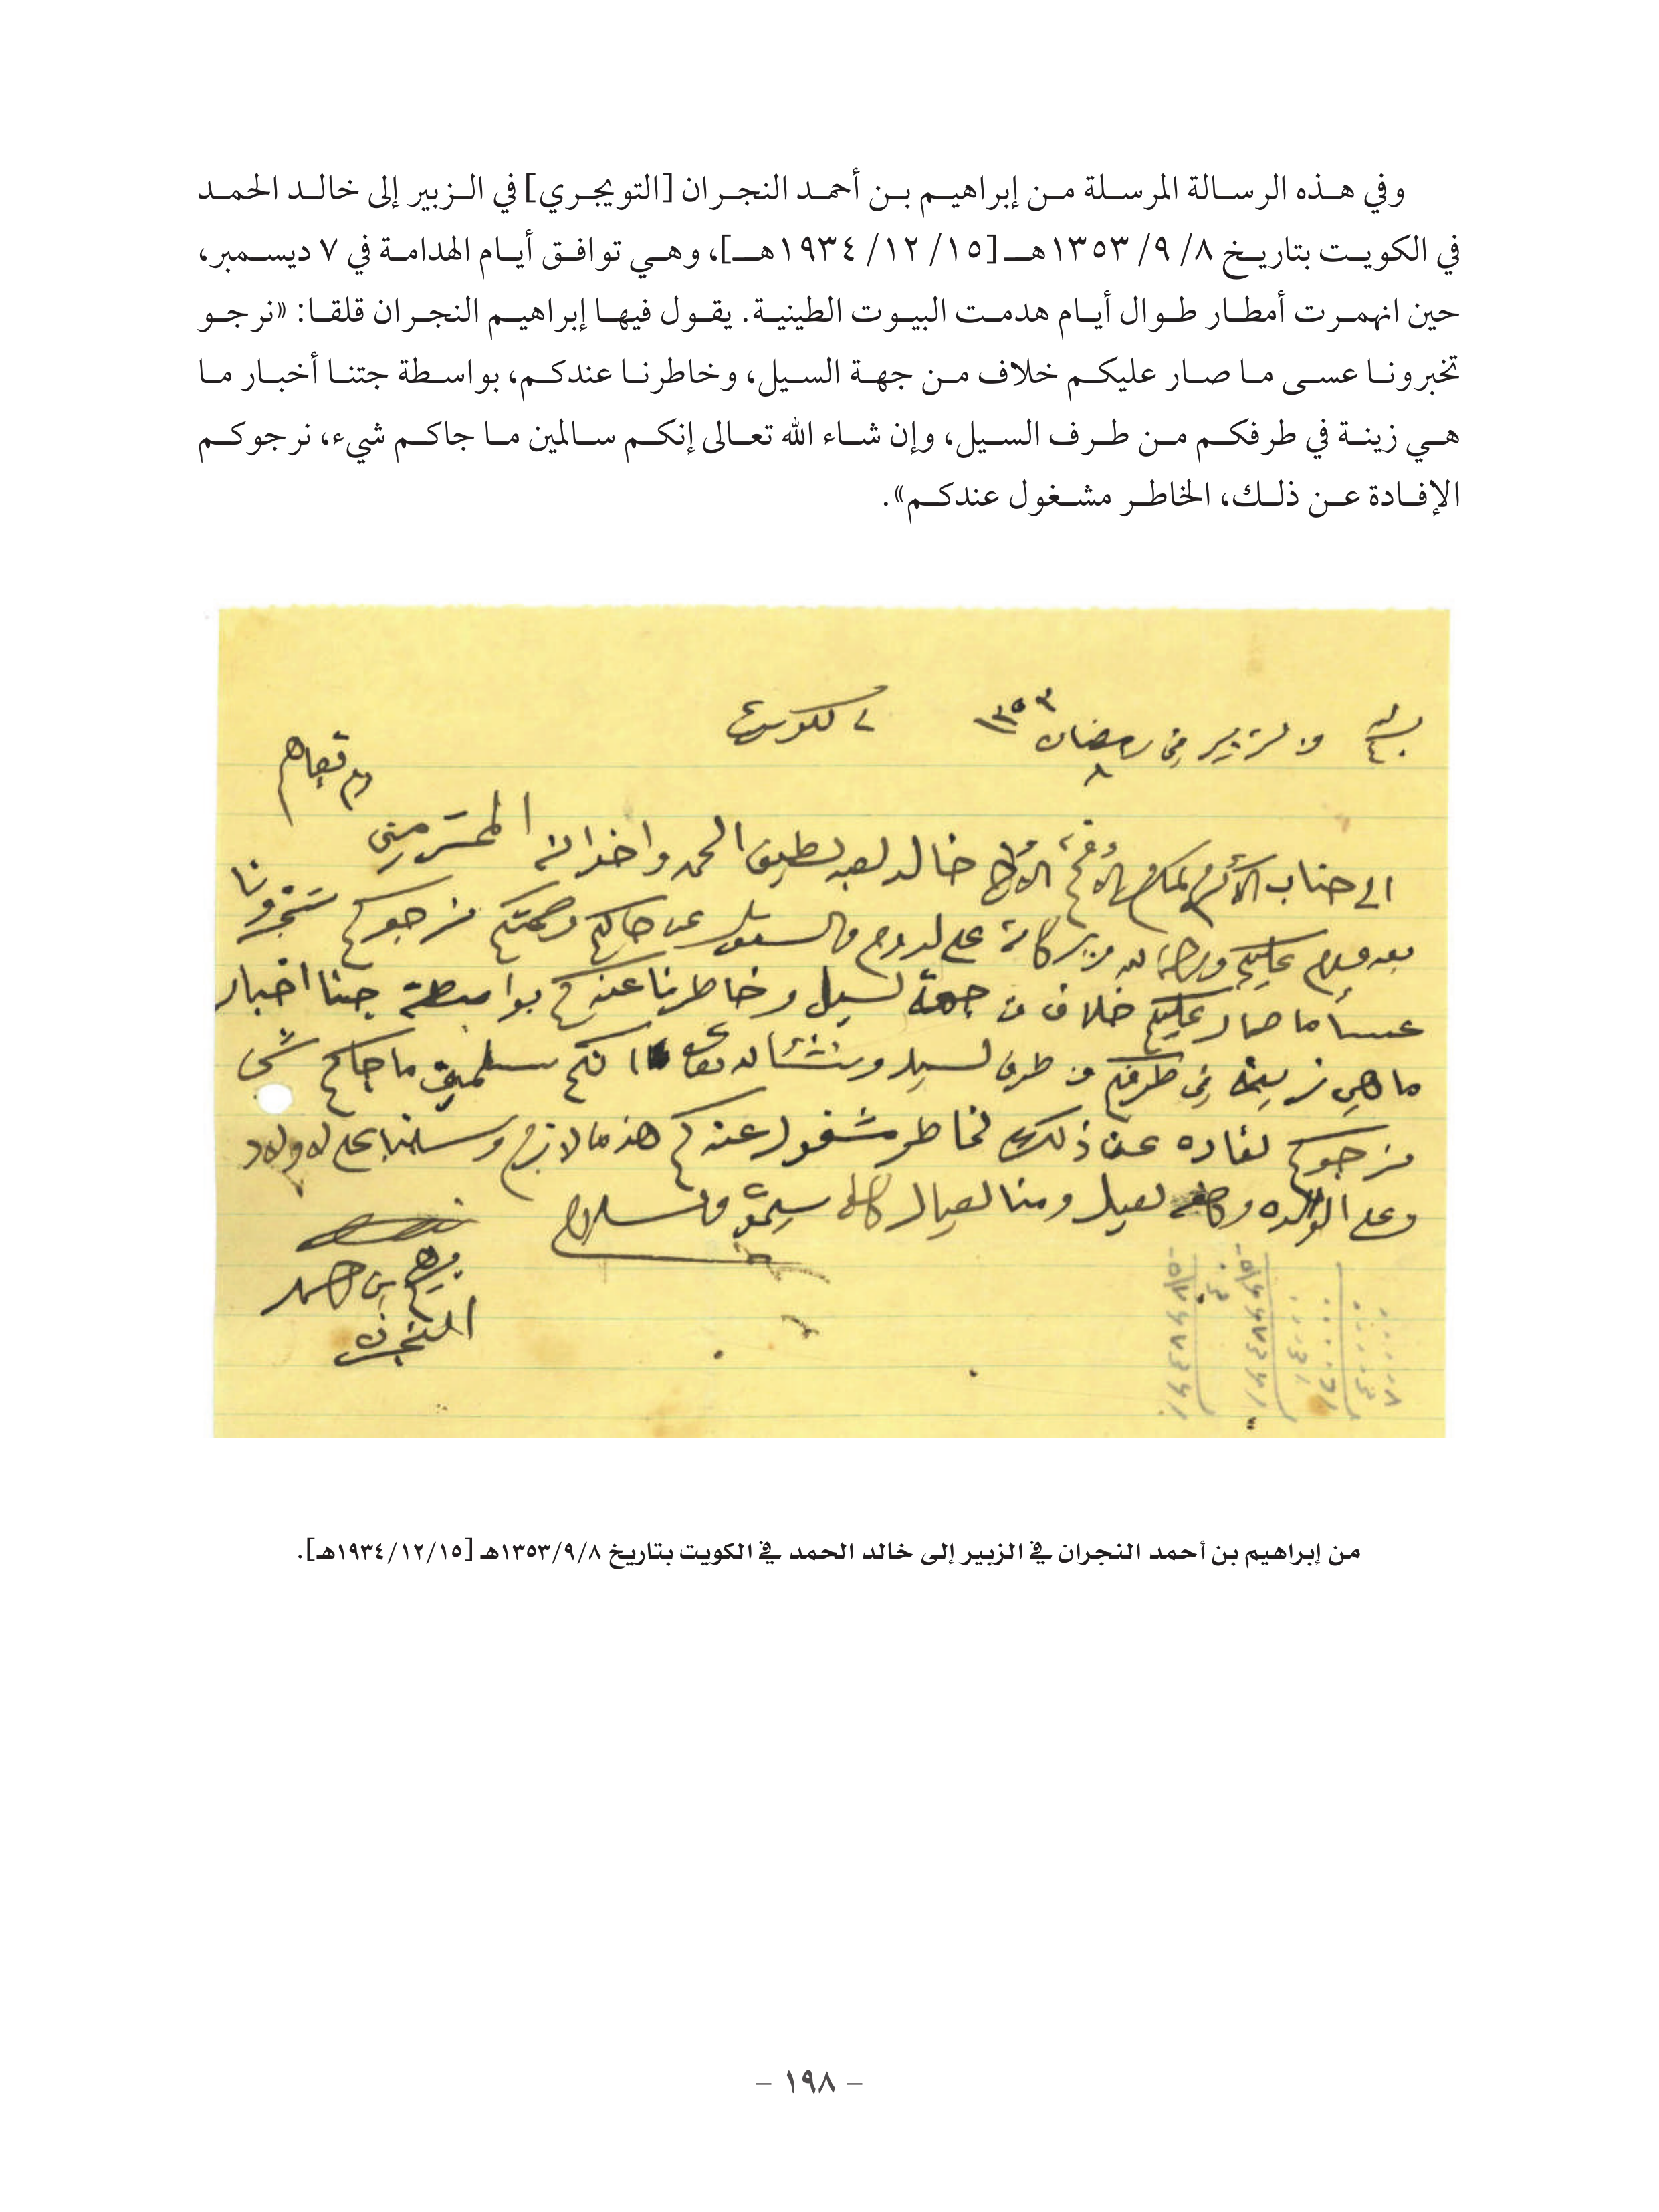 وفي هذه الرسالة المرسلة من إبراهيم بن أحمد النجران [التويجري] في الزبير إلى خالد الحمد
في الكويت بتاريخ ٨/ ٩/ ١٣٥٣هـ [١٥/ ١٢/ ١٩٣٤هـ]، وهي توافق أيام الهدامة في ٧ ديسمبر،
حين انهمرت أمطار طوال أيام هدمت البيوت الطينية. يقول فيها إبراهيم النجران قلقا: «نرجو
تخبرونا عسى ما صار عليكم خلاف من جهة السيل، وخاطرنا عندكم، بواسطة جتنا أخبار ما
هي زينة في طرفكم من طرف السيل، وإن شاء الله تعالى إنكم سالمين ما جاكم شيء، نرجوكم
الإفادة عن ذلك، الخاطر مشغول عندكم».
من لزبير في رمضان ١٣٥٣ لكويت
٨
الى جناب الأكرم المكرم الأفخم خالد لعبد لطيف الحمد واخوانه المحترمين
عليكم ورحمة له وبركاته على لدوام والسئوال عن حالكم وصحتكم نرجوكم تخبرونا
عسا ما صار عليكم خلاف من جهة لسيل وخاطرنا عندكم بواسطة جتنا اخبار
ما هي زينه في طرفكم من طرف لسيل ونشاله تعا انكم سلمين ما جاكم شي
نرجوكم لفاده عن ذلك لخاطر مشغول عندكم هذ ما لازم وسلمنا على لاولاد
وعلى الوالده وكافه لعيال ومنا لعيال كافه يسلمو والسلام
برهيم بن حمد
النجران
من إبراهيم بن أحمد النجران في الزبير إلى خالد الحمد في الكويت بتاريخ ١٣٥٣/٩/٨هـ [١٩٣٤/١٢/١٥هـ].
– ١٩٨ –